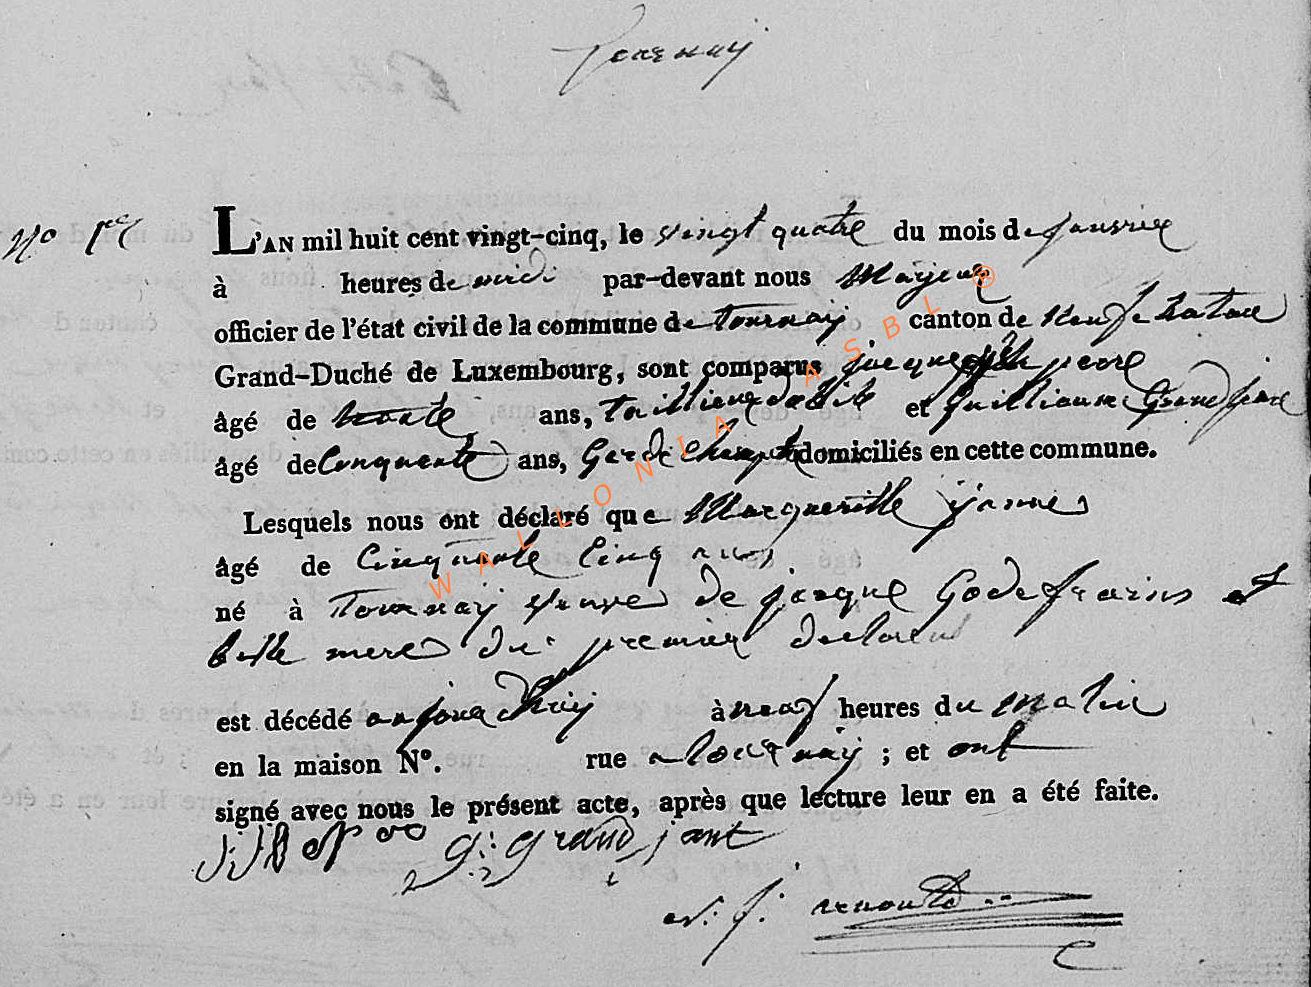 Tournay
No 1er
L'AN mil huit cent vingt-cinq, le vingt quatre du mois de janvier
à heures de midi par-devant nous Mayeur
officier de l'état civil de la commune de tournay canton de Neufchateau
Grand-Duché de Luxembourg, sont comparus jacque
âgé de trente ans, tailleur dabit et Guilliaume Grandjeant
âgé de Cinquente ans, Garde Champetre domiciliés en cette commune.
Lesquels nous ont déclaré que Marguerithe
âgé de Cinquante Cinq ans
né à Tournay veuve de jacque Godefroins et
belle mere du premier declarant
est décédé anjourdhuy à neuf heures du matin
en la maison N°. rue a tournay ; et ont
signé avec nous le présent acte, après que lecture leur en a été faite.
g: grand jant
arnould
WALLONIA ASBL ®